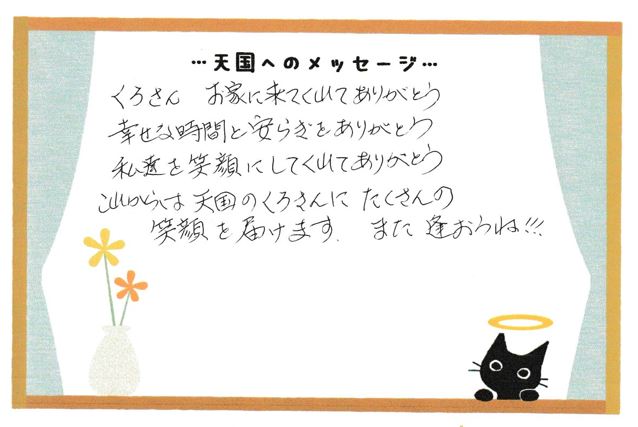 …天国へのメッセージ…
くろさん お家に来てくれてありがとう
幸せな時間と安らぎをありがとう
私達を笑顔にしてくれてありがとう
これからは天国のくろさんに たくさんの
笑顔を届けます. また逢おうね!!!